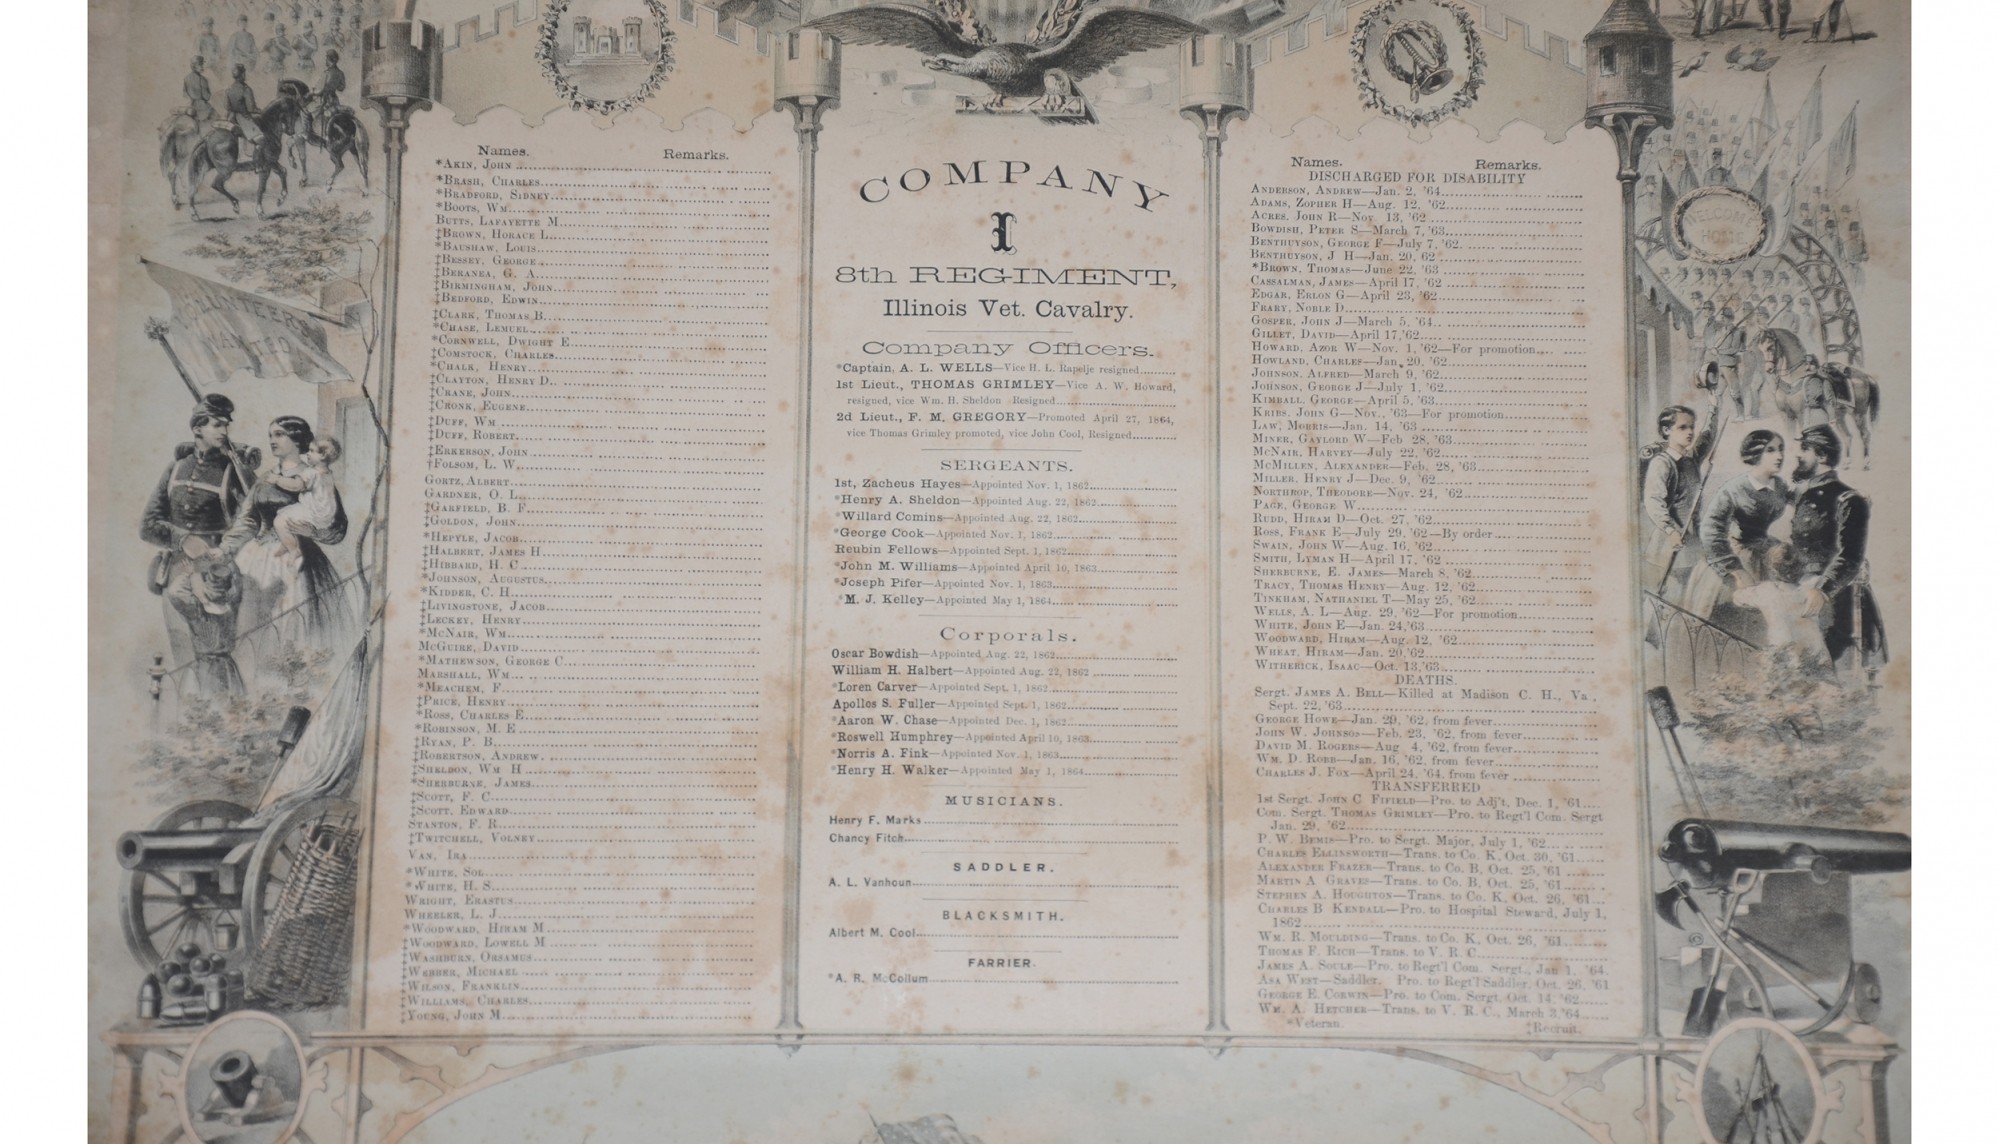 VOLUNTEERS
WANTED
Names. Remarks.
*Akin, John
*Brash, Charles
*Bradford, Sidney
*Boots, Wm.
Butts, Lafayette M
‡Brown, Horace L.
*Baushaw, Louis
‡Bessey, George
‡Beranea, G. A.
‡Birmingham, John
‡Bedford, Edwin
‡Clark, Thomas B.
*Chase, Lemuel
*Cornwell, Dwight E
‡Comstock, Charles
*Chalk, Henry
‡Clayton, Henry D.
‡Crane, John
‡Cronk, Eugene
‡Duff, Wm
‡Duff, Robert
‡Erkerson, John
†Folsom, L. W.
Gortz, Albert
Gardner, O. L.
‡Garfield, B. F.
‡Goldon, John
*Hefyle, Jacob
‡Halbert, James H
‡Hibbard, H. C.
*Johnson, Augustus
*Kidder, C. H
‡Livingstone, Jacob
‡Leckey, Henry
*McNair, Wm.
McGuire, David
*Mathewson, George C
Marshall, Wm.
*Meachem, F.
‡Price, Henry
*Ross, Charles E
*Robinson, M. E
‡Ryan, P. B.
‡Robertson, Andrew.
‡Sheldon, Wm H
*Sherburne, James
‡Scott, F. C.
‡Scott, Edward
Stanton, F. R.
‡Twitchell, Volney
Van, Ira
*White, Sol
*White, H. S.
Wright, Erastus
Wheeler, L. J.
*Woodward, Hiram M
‡Woodward, Lowell M
‡Washburn, Orsamus
‡Webber, Michael
‡Wilson, Franklin
‡Williams, Charles
‡Young, John M
COMPANY
I
8th REGIMENT,
Illinois Vet. Cavalry.
Company Officers.
*Captain, A. L. WELLS—Vice H. L. Rapelje resigned
1st Lieut., THOMAS GRIMLEY—Vice A. W. Howard,
resigned, vice Wm. H. Sheldon Resigned
2d Lieut., F. M. GREGORY—Promoted April 27, 1864,
vice Thomas Grimley promoted, vice John Cool, Resigned
SERGEANTS.
1st, Zacheus Hayes—Appointed Nov. 1, 1862
*Henry A. Sheldon—Appointed Aug. 22, 1862
*Willard Comins—Appointed Aug. 22, 1862
*George Cook—Appointed Nov. 1, 1862
Reubin Fellows—Appointed Sept. 1, 1862
*John M. Williams—Appointed April 10, 1863
*Joseph Pifer—Appointed Nov. 1, 1863
*M. J. Kelley—Appointed May 1, 1864
Corporals.
Oscar Bowdish—Appointed Aug. 22, 1862
William H. Halbert—Appointed Aug. 22, 1862
*Loren Carver—Appointed Sept. 1, 1862
Apollos S. Fuller—Appointed Sept. 1, 1862
*Aaron W. Chase—Appointed Dec. 1, 1862
*Roswell Humphrey—Appointed April 10, 1863
*Norris A. Fink—Appointed Nov. 1, 1863
*Henry H. Walker—Appointed May 1, 1864
MUSICIANS.
Henry F. Marks
Chancy Fitch
SADDLER.
A. L. Vanhoun
BLACKSMITH.
Albert M. Cool
FARRIER.
*A. R. McCollum
Names. Remarks.
DISCHARGED FOR DISABILITY
Anderson, Andrew—Jan. 2, '64
Adams, Zopher H—Aug. 12, '62
Acres, John R—Nov. 13, '62
Bowdish, Peter S—March 7, '63
Benthuyson, George F—July 7, '62
Benthuyson, J H—Jan. 20, 62
*Brown, Thomas—June 22, '63
Cassalman, James—April 17, '62
Edgar, Erlon G—April 23, '62
Frary, Noble D.
Gosper, John J—March 5, '64
Gillet, David—April 17,'62
Howard, Azor W—Nov. 1, '62—For promotion
Howland, Charles—Jan. 20, '62
Johnson, Alfred—March 9, '62
Johnson, George J—July 1, '62
Kimball, George—April 5, '63
Kribs, John G—Nov., '63—For promotion
Law, Morris—Jan. 14, '63
Miner, Gaylord W—Feb 28, '63
McNair, Harvey—July 22, '62
McMillen, Alexander—Feb. 28, '63
Miller, Henry J—Dec. 9, '62
Northrop, Theodore—Nov. 24, '62
Page, George W.
Rudd, Hiram D—Oct. 27, '62
Ross, Frank E—July 29, '62—By order
Swain, John W—Aug. 16, '62
Smith, Lyman H—April 17, '62
Sherburne, E. James—March 8, '62
Tracy, Thomas Henry—Aug. 12, '62
Tinkham, Nathaniel T—May 25, '62
Wells, A. L—Aug. 29, '62—For promotion
White, John E—Jan. 24,'63
Woodward, Hiram—Aug. 12, '62
Wheat, Hiram—Jan. 20,'62
Witherick, Isaac—Oct. 13,'63
DEATHS.
Sergt. James A. Bell—Killed at Madison C. H., Va.,
Sept. 22, '63
George Howe—Jan. 29, '62, from fever
John W. Johnson—Feb. 23, '62, from fever
David M. Rogers—Aug 4, '62, from fever
Wm. D. Robb—Jan. 16, '62, from fever
Charles J. Fox—April 24, '64, from fever
TRANSFERRED
1st Sergt. John C Fifield—Pro. to Adj't, Dec. 1, '61
Com. Sergt. Thomas Grimley—Pro. to Regt'l Com. Sergt
Jan. 29, '62
P. W. Bemis—Pro. to Sergt. Major, July 1, '62
Charles Ellinsworth—Trans. to Co. K, Oct. 30, '61
Alexander Frazer—Trans. to Co. B, Oct. 25, '61
Martin A Graves—Trans. to Co. B, Oct. 25, '61
Stephen A. Houghton—Trans. to Co. K, Oct. 26, '61
Charles B Kendall—Pro. to Hospital Steward, July 1,
1862
Wm. R. Moulding—Trans. to Co. K, Oct. 26, '61
Thomas F. Rich—Trans. to V. R. C
James A. Soule—Pro. to Regt'l Com. Sergt., Jan 1, '64.
Asa West—Saddler. Pro. to Regt'l Saddler, Oct. 26, '61
George E. Corwin—Pro. to Com. Sergt, Oct. 14, '62
Wm. A. Hetcher—Trans. to V. R. C., March 3,'64
*Veteran. ‡Recruit.
WELCOME
HOME